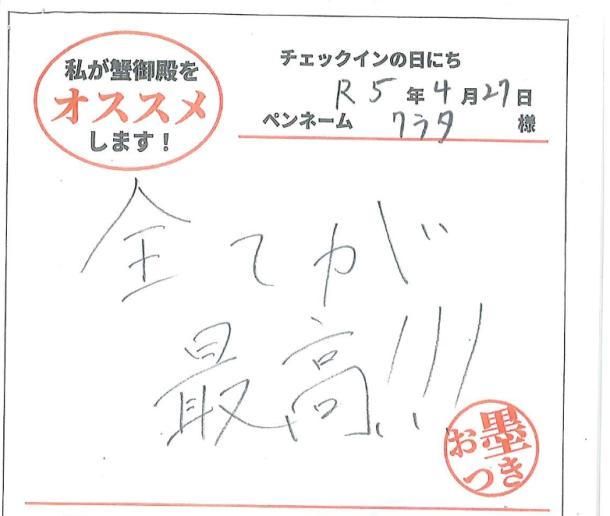 私が蟹御殿を
オススメ
します！
チェックインの日にち
R5年4月27日
ペンネーム クラタ 様
全てが
最高!!!
お墨
つき